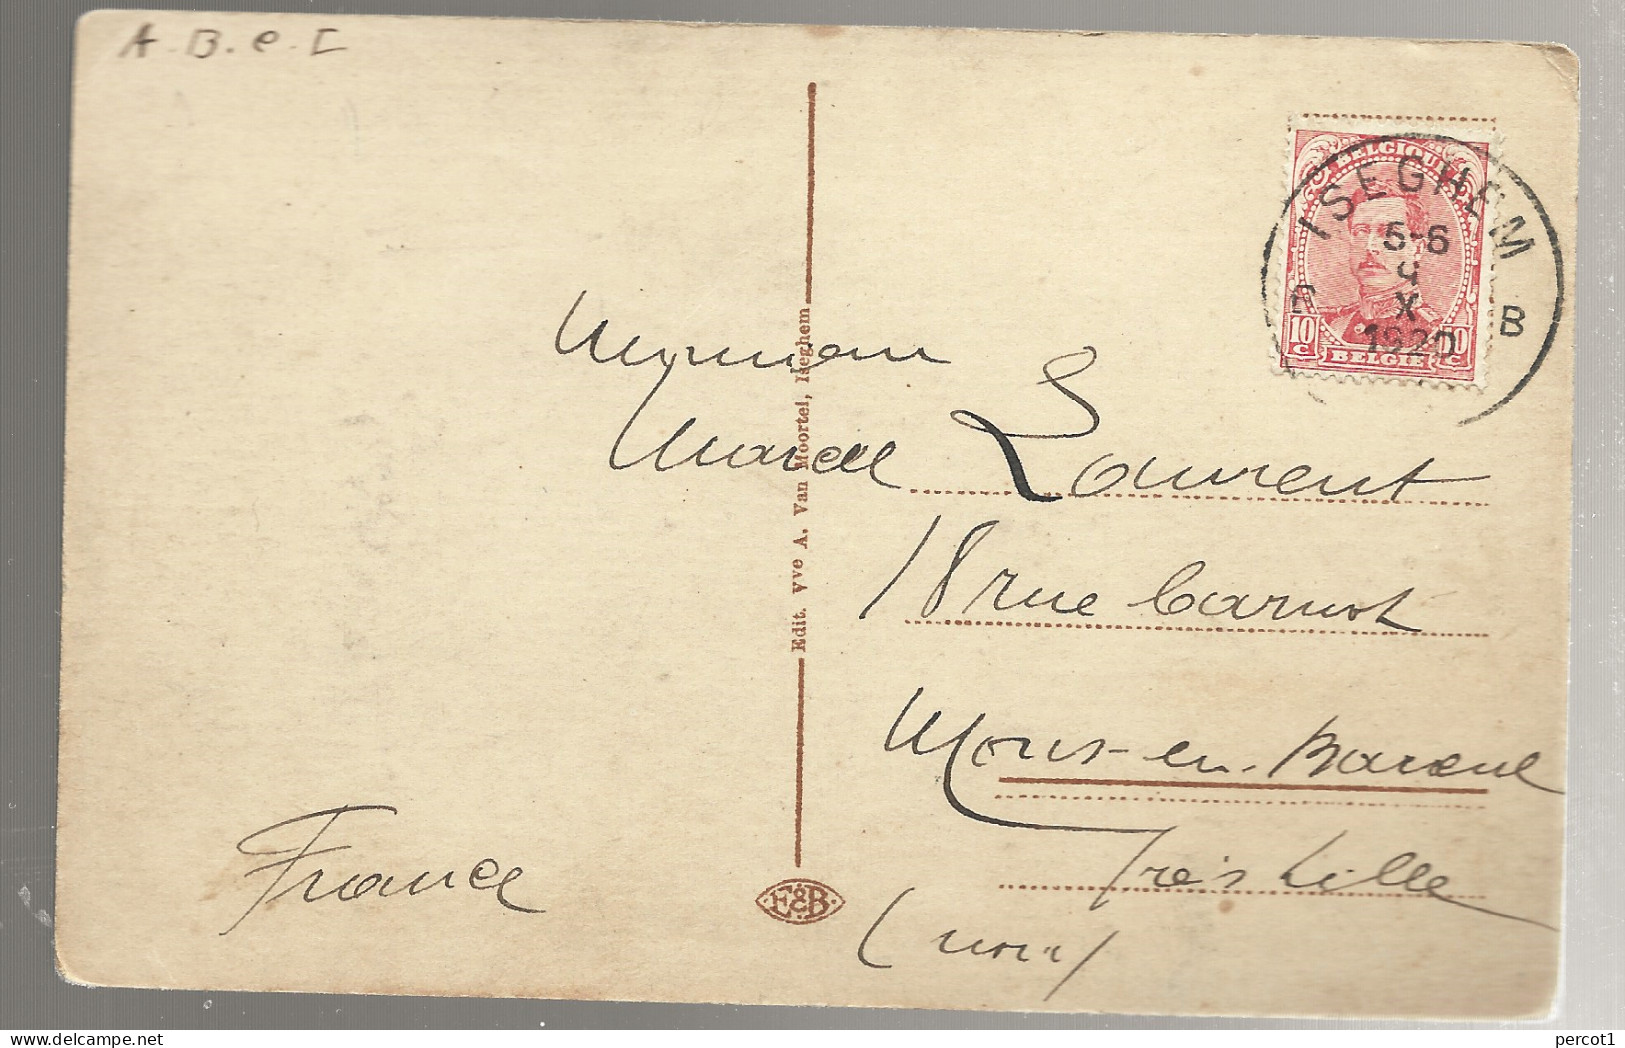 A.B.e.C
BELGIQUE
ISEGHEM
5-6
9
X
1920
B
10
C
BELGIË
Edit. Vve A. Van Moortel, Iseghem
Monsieur
Marcel Laurent
18 rue Carnot
Mons-en-Baroeul
Près Lille
(Nord)
France
E&B
percot1